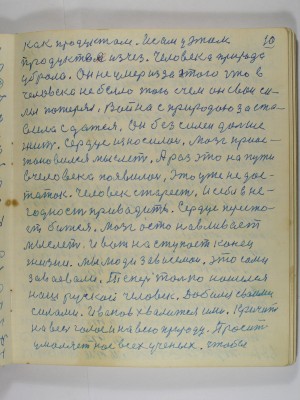 10
как продуктом. И сам этим
продуктом изчез. Человека природа
убрала. Он не умер из за этого что в
человека не было того с чем он свои си-
лы потерял. Война с природою заста-
вила сдатся. Он без силен дальше
жит. Сердце износилос. Мозг приос-
тановился мыслет. А раз это на пути
в человека появилос, это уже не дос-
таток. Человек стареет. И себя в не-
годност приводить. Сердце престо-
ит бится. Мозг останавливает
мыслет. И вот наступает конец
жизни. Мы люди завоевали. Это сами
завоевали. Тепер толко нашелся
наш руской человек. Добили своими
силами. Иванов хвалится ими. Кричит
на вес голос и на всю природу. А просит
умоляет нас всех ученых. чтобы